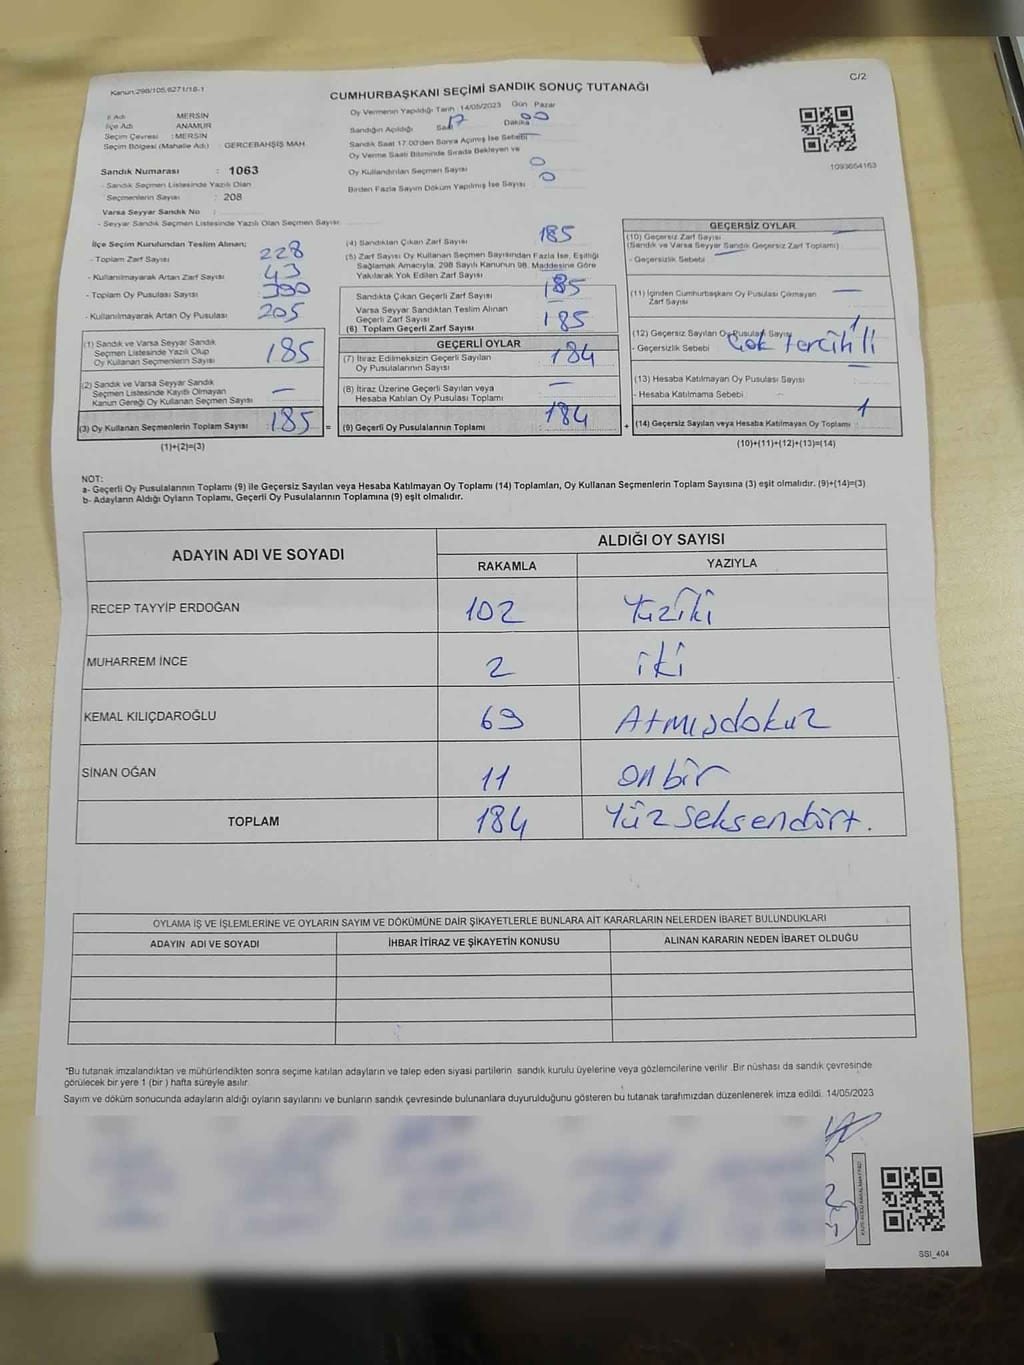 Kanun:298/105,6271/18-1
C/2
CUMHURBAŞKANI SEÇİMİ SANDIK SONUÇ TUTANAĞI
İl Adı MERSİN
İlçe Adı ANAMUR
Seçim Çevresi : MERSİN
Seçim Bölgesi (Mahalle Adı) : GERCEBAHŞİŞ MAH.
Sandık Numarası : 1063
- Sandık Seçmen Listesinde Yazılı Olan
Seçmenlerin Sayısı : 208
Varsa Seyyar Sandık No :
- Seyyar Sandık Seçmen Listesinde Yazılı Olan Seçmen Sayısı:
Oy Vermenin Yapıldığı Tarih : 14/05/2023 Gün Pazar
Sandığın Açıldığı Saat 17 Dakika 00
Sandık Saat 17.00'den Sonra Açılmış İse Sebebi —
Oy Verme Saati Bitiminde Sırada Bekleyen ve
Oy Kullandırılan Seçmen Sayısı 0
Birden Fazla Sayım Döküm Yapılmış İse Sayısı 0
1093654163
İlçe Seçim Kurulundan Teslim Alınan;
- Toplam Zarf Sayısı 228
- Kullanılmayarak Artan Zarf Sayısı 43
- Toplam Oy Pusulası Sayısı
- Kullanılmayarak Artan Oy Pusulası 205
(1) Sandık ve Varsa Seyyar Sandık
Seçmen Listesinde Yazılı Olup
Oy Kullanan Seçmenlerin Sayısı 185
(2) Sandık ve Varsa Seyyar Sandık
Seçmen Listesinde Kayıtlı Olmayan
Kanun Gereği Oy Kullanan Seçmen Sayısı —
(3) Oy Kullanan Seçmenlerin Toplam Sayısı : 185 =
(1)+(2)=(3)
(4) Sandıktan Çıkan Zarf Sayısı 185
(5) Zarf Sayısı Oy Kullanan Seçmen Sayısından Fazla İse, Eşitliği
Sağlamak Amacıyla, 298 Sayılı Kanunun 98. Maddesine Göre
Yakılarak Yok Edilen Zarf Sayısı
Sandıkta Çıkan Geçerli Zarf Sayısı 185
Varsa Seyyar Sandıktan Teslim Alınan
Geçerli Zarf Sayısı —
(6) Toplam Geçerli Zarf Sayısı 185
GEÇERLİ OYLAR
(7) İtiraz Edilmeksizin Geçerli Sayılan
Oy Pusulalarının Sayısı 184
(8) İtiraz Üzerine Geçerli Sayılan veya
Hesaba Katılan Oy Pusulası Toplamı —
(9) Geçerli Oy Pusulalarının Toplamı : 184 +
GEÇERSİZ OYLAR
(10) Geçersiz Zarf Sayısı —
(Sandık ve Varsa Seyyar Sandık Geçersiz Zarf Toplamı)
- Geçersizlik Sebebi —
(11) İçinden Cumhurbaşkanı Oy Pusulası Çıkmayan
Zarf Sayısı —
(12) Geçersiz Sayılan Oy Pusulası Sayısı 1
- Geçersizlik Sebebi Çok tercihli
(13) Hesaba Katılmayan Oy Pusulası Sayısı —
- Hesaba Katılmama Sebebi
(14) Geçersiz Sayılan veya Hesaba Katılmayan Oy Toplamı : 1
(10)+(11)+(12)+(13)=(14)
NOT:
a- Geçerli Oy Pusulalarının Toplamı (9) ile Geçersiz Sayılan veya Hesaba Katılmayan Oy Toplamı (14) Toplamları, Oy Kullanan Seçmenlerin Toplam Sayısına (3) eşit olmalıdır. (9)+(14)=(3)
b- Adayların Aldığı Oyların Toplamı, Geçerli Oy Pusulalarının Toplamına (9) eşit olmalıdır.
ADAYIN ADI VE SOYADI
ALDIĞI OY SAYISI
RAKAMLA YAZIYLA
RECEP TAYYİP ERDOĞAN 102 Yüziki
MUHARREM İNCE 2 iki
KEMAL KILIÇDAROĞLU 69 Atmışdokuz
SİNAN OĞAN 11 onbir
TOPLAM 184 Yüzseksendört.
OYLAMA İŞ VE İŞLEMLERİNE VE OYLARIN SAYIM VE DÖKÜMÜNE DAİR ŞİKAYETLERLE BUNLARA AİT KARARLARIN NELERDEN İBARET BULUNDUKLARI
ADAYIN ADI VE SOYADI İHBAR İTİRAZ VE ŞİKAYETİN KONUSU ALINAN KARARIN NEDEN İBARET OLDUĞU
"Bu tutanak imzalandıktan ve mühürlendikten sonra seçime katılan adayların ve talep eden siyasi partilerin sandık kurulu üyelerine veya gözlemcilerine verilir. Bir nüshası da sandık çevresinde
görülecek bir yere 1 (bir) hafta süreyle asılır.
Sayım ve döküm sonucunda adayların aldığı oyların sayılarını ve bunların sandık çevresinde bulunanlara duyurulduğunu gösteren bu tutanak tarafımızdan düzenlenerek imza edildi. 14/05/2023
SSI_404